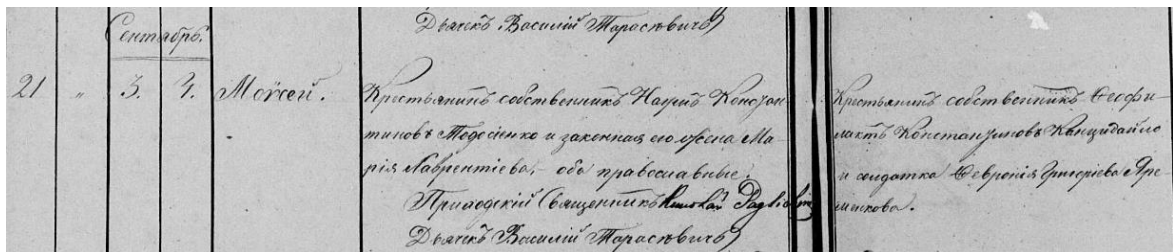 Дьячекъ Василій Тарасевичъ
Сентябрь.
21 " 3. 7. Моѵсей.
Крестьянинъ собственникъ Наумъ Констан-
тиновъ Тодосіенко и законная его жена Ма-
рія Лаврентіева, оба православные.
Приходскій Священникъ
Дьячекъ Василій Тарасевичъ
Крестьянинъ собственникъ Ѳеофи-
лактъ Константиновъ
и солдатка Ѳевронія Григоріева Яре-
менкова.